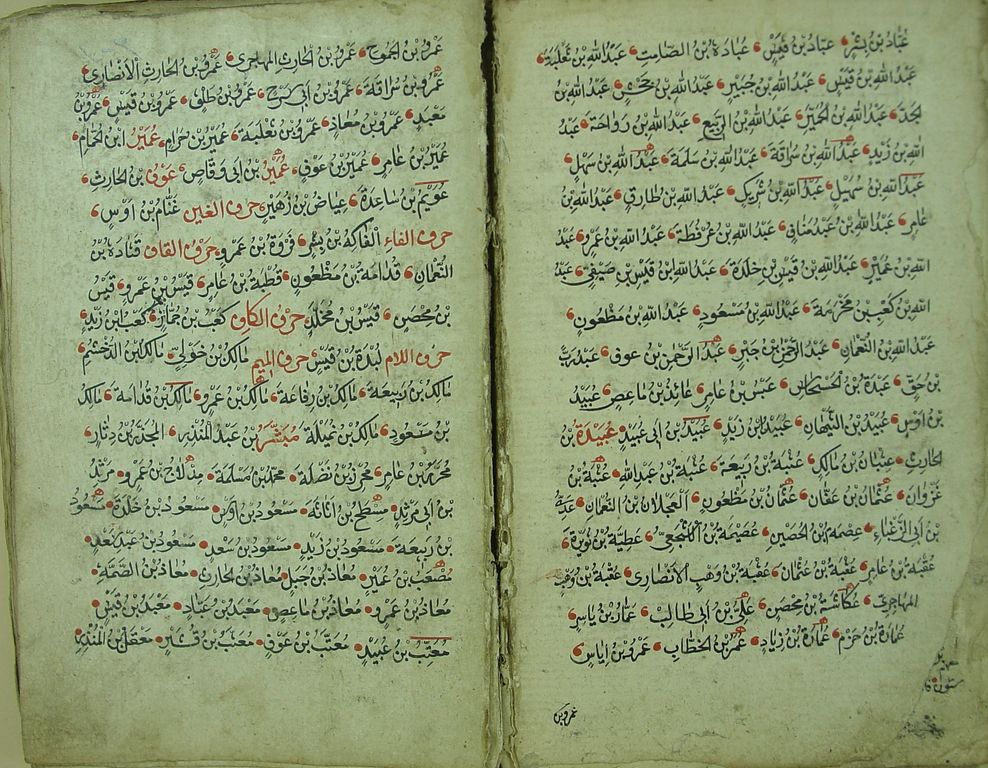 عَبَّادُ بْنُ بِشْرٍ عَبَّادُ بْنُ قَيْسٍ عُبَادَةُ بْنُ الصَّامِتِ عَبْدُ اللهِ بْنُ ثَعْلَبَةَ
عَبْدُ اللهِ بْنُ قَيْسٍ عَبْدُ اللهِ بْنُ جُبَيْرٍ عَبْدُ اللهِ بْنُ جَحْشٍ عَبْدُ اللهِ بْنُ
الجَدِّ عَبْدُ اللهِ بْنُ الحُمَيِّرِ عَبْدُ اللهِ بْنُ الرَّبِيعِ عَبْدُ اللهِ بْنُ رَوَاحَةَ عَبْدُ
اللهِ بْنُ زَيْدٍ عَبْدُ اللهِ بْنُ سُرَاقَةَ عَبْدُ اللهِ بْنُ سَلَمَةَ عَبْدُ اللهِ بْنُ سَهْلٍ
عَبْدُ اللهِ بْنُ سُهَيْلٍ عَبْدُ اللهِ بْنُ شَرِيكٍ عَبْدُ اللهِ بْنُ طَارِقٍ عَبْدُ اللهِ بْنُ
عَامِرٍ عَبْدُ اللهِ بْنُ عَبْدِ مَنَافٍ عَبْدُ اللهِ بْنُ عُرْفُطَةَ عَبْدُ اللهِ بْنُ عَمْرٍو عَبْدُ
اللهِ بْنُ عُمَيْرٍ عَبْدُ اللهِ بْنُ قَيْسِ بْنِ خَلْدَةَ عَبْدُ اللهِ ابْنُ قَيْسِ بْنِ صَيْفِيٍّ عَبْدُ
اللهِ بْنُ كَعْبِ بْنِ مَخْرَمَةَ عَبْدُ اللهِ بْنُ مَسْعُودٍ عَبْدُ اللهِ بْنُ مَظْعُونٍ
عَبْدُ اللهِ بْنُ النُّعْمَانِ عَبْدُ الرَّحْمٰنِ بْنُ جَبْرٍ عَبْدُ الرَّحْمٰنِ بْنُ عَوْفٍ عَبْدُ رَبِّ
بْنُ حَقٍّ عَبْدَةُ بْنُ الحَسْحَاسِ عَبْسُ بْنُ عَامِرٍ عَائِذُ بْنُ مَاعِصٍ عُبَيْدُ
بْنُ أَوْسٍ عُبَيْدُ بْنُ التَّيِّهَانِ عُبَيْدُ بْنُ زَيْدٍ عُبَيْدُ بْنُ أَبِي عُبَيْدٍ عُبَيْدَةُ بْنُ
الحَارِثِ عِتْبَانُ بْنُ مَالِكٍ عُتْبَةُ بْنُ رَبِيعَةَ عُتْبَةُ بْنُ عَبْدِ اللهِ عُتْبَةُ بْنُ
غَزْوَانَ عُثْمَانُ بْنُ عَفَّانَ عُثْمَانُ بْنُ مَظْعُونٍ العَجْلَانُ بْنُ النُّعْمَانِ عَدِيُّ
بْنُ أَبِي الزَّغْبَاءِ عِصْمَةُ بْنُ الحُصَيْنِ عُصَيْمَةُ بْنُ الأَشْجَعِيِّ عَطِيَّةُ بْنُ نُوَيْرَةَ
عُقْبَةُ بْنُ عَامِرٍ عُقْبَةُ بْنُ عُثْمَانَ عُقْبَةُ بْنُ وَهْبٍ الأَنْصَارِيُّ عُقْبَةُ بْنُ وَهْبٍ
المُهَاجِرِيُّ عُكَاشَةُ بْنُ مِحْصَنٍ عَلِيُّ بْنُ أَبِي طَالِبٍ عَمَّارُ بْنُ يَاسِرٍ
عُمَارَةُ بْنُ حَزْمٍ عُمَارَةُ بْنُ زِيَادٍ عُمَرُ بْنُ الخَطَّابِ عَمْرُو بْنُ إِيَاسٍ
عمرو بن
عَمْرُو بْنُ الجَمُوحِ عَمْرُو بْنُ الحَارِثِ المُهَاجِرِيُّ عَمْرُو بْنُ الحَارِثِ الأَنْصَارِيُّ
عَمْرُو بْنُ سُرَاقَةَ عَمْرُو بْنُ أَبِي سَرْحٍ عَمْرُو بْنُ طَلْقٍ عَمْرُو بْنُ قَيْسٍ عَمْرُو بْنُ
مَعْبَدٍ عَمْرُو بْنُ مُعَاذٍ عَمْرُو بْنُ ثَعْلَبَةَ عُمَيْرُ بْنُ حَرَامٍ عُمَيْرُ ابْنُ الحُمَامِ
عُمَيْرُ بْنُ عَامِرٍ عُمَيْرُ بْنُ عَوْفٍ عُمَيْرُ بْنُ أَبِي وَقَّاصٍ عَوْفُ بْنُ الحَارِثِ
عُوَيْمُ بْنُ سَاعِدَةَ عِيَاضُ بْنُ زُهَيْرٍ حرف الغين غَنَّامُ بْنُ أَوْسٍ
حرف الفاء الفَاكِهُ بْنُ بِشْرٍ فَرْوَةُ بْنُ عَمْرٍو حرف القاف قَتَادَةُ بْنُ
النُّعْمَانِ قُدَامَةُ بْنُ مَظْعُونٍ قُطْبَةُ بْنُ عَامِرٍ قَيْسُ بْنُ عَمْرٍو قَيْسُ
بْنُ مِحْصَنٍ قَيْسُ بْنُ مَخْلَدٍ حرف الكاف كَعْبُ بْنُ جَمَّازٍ كَعْبُ بْنُ زَيْدٍ
حرف اللام لُبْدَةُ بْنُ قَيْسٍ حرف الميم مَالِكُ بْنُ خَوْلِيٍّ مَالِكُ بْنُ الدُّخْشُمِ
مَالِكُ بْنُ رَبِيعَةَ مَالِكُ بْنُ رِفَاعَةَ مَالِكُ بْنُ عَمْرٍو مَالِكُ بْنُ قُدَامَةَ مَالِكُ
بْنُ مَسْعُودٍ مَالِكُ بْنُ نُمَيْلَةَ مُبَشِّرُ بْنُ عَبْدِ المُنْذِرِ المُجَذَّرُ بْنُ ذِيَارٍ
مُحْرِزُ بْنُ عَامِرٍ مُحْرِزُ بْنُ نَضْلَةَ مُحَمَّدُ بْنُ مَسْلَمَةَ مِدْلَاجُ بْنُ عَمْرٍو مَرْثَدُ
بْنُ أَبِي مَرْثَدٍ مِسْطَحُ بْنُ أُثَاثَةَ مَسْعُودُ بْنُ أَوْسٍ مَسْعُودُ بْنُ خَلْدَةَ مَسْعُودُ
بْنُ رَبِيعَةَ مَسْعُودُ بْنُ زَيْدٍ مَسْعُودُ بْنُ سَعْدٍ مَسْعُودُ بْنُ عَبْدِ سَعْدٍ
مُصْعَبُ بْنُ عُمَيْرٍ مُعَاذُ بْنُ جَبَلٍ مُعَاذُ بْنُ الحَارِثِ مُعَاذُ بْنُ الصِّمَّةِ
مُعَاذُ بْنُ عَمْرٍو مُعَاذُ بْنُ مَاعِصٍ مَعْبَدُ بْنُ عَبَّادٍ مَعْبَدُ بْنُ قَيْسٍ
مُعَتِّبُ بْنُ عُبَيْدٍ مُعَتِّبُ بْنُ عَوْفٍ مُعَتِّبُ بْنُ قُشَيْرٍ مَعْقِلُ بْنُ المُنْذِرِ